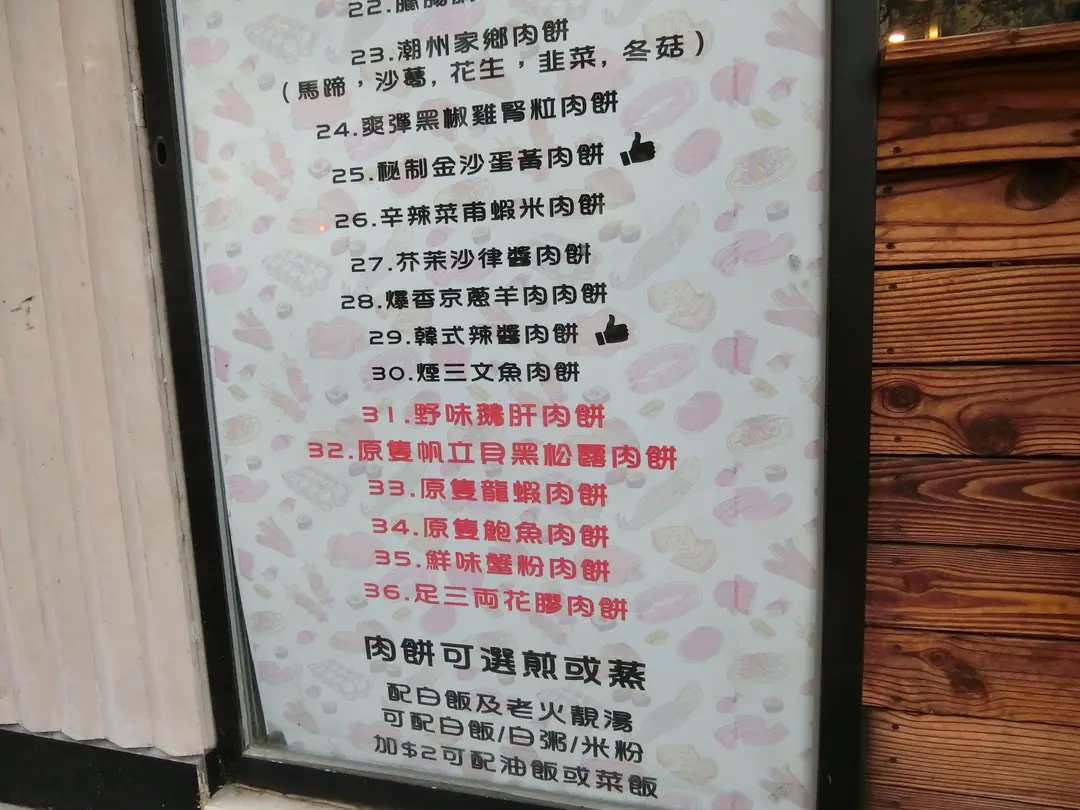 22.膶腸
23.潮州家鄉肉餅
(馬蹄，沙葛, 花生，韭菜, 冬菇)
24.爽彈黑椒雞腎粒肉餅
25.秘制金沙蛋黃肉餅
26.辛辣菜甫蝦米肉餅
27.芥茉沙律醬肉餅
28.爆香京蔥羊肉肉餅
29.韓式辣醬肉餅
30.煙三文魚肉餅
31.野味鵝肝肉餅
32.原隻帆立貝黑松露肉餅
33.原隻龍蝦肉餅
34.原隻鮑魚肉餅
35.鮮味蟹粉肉餅
36.足三両花膠肉餅
肉餅可選煎或蒸
配白飯及老火靚湯
可配白飯/白粥/米粉
加$2可配油飯或菜飯